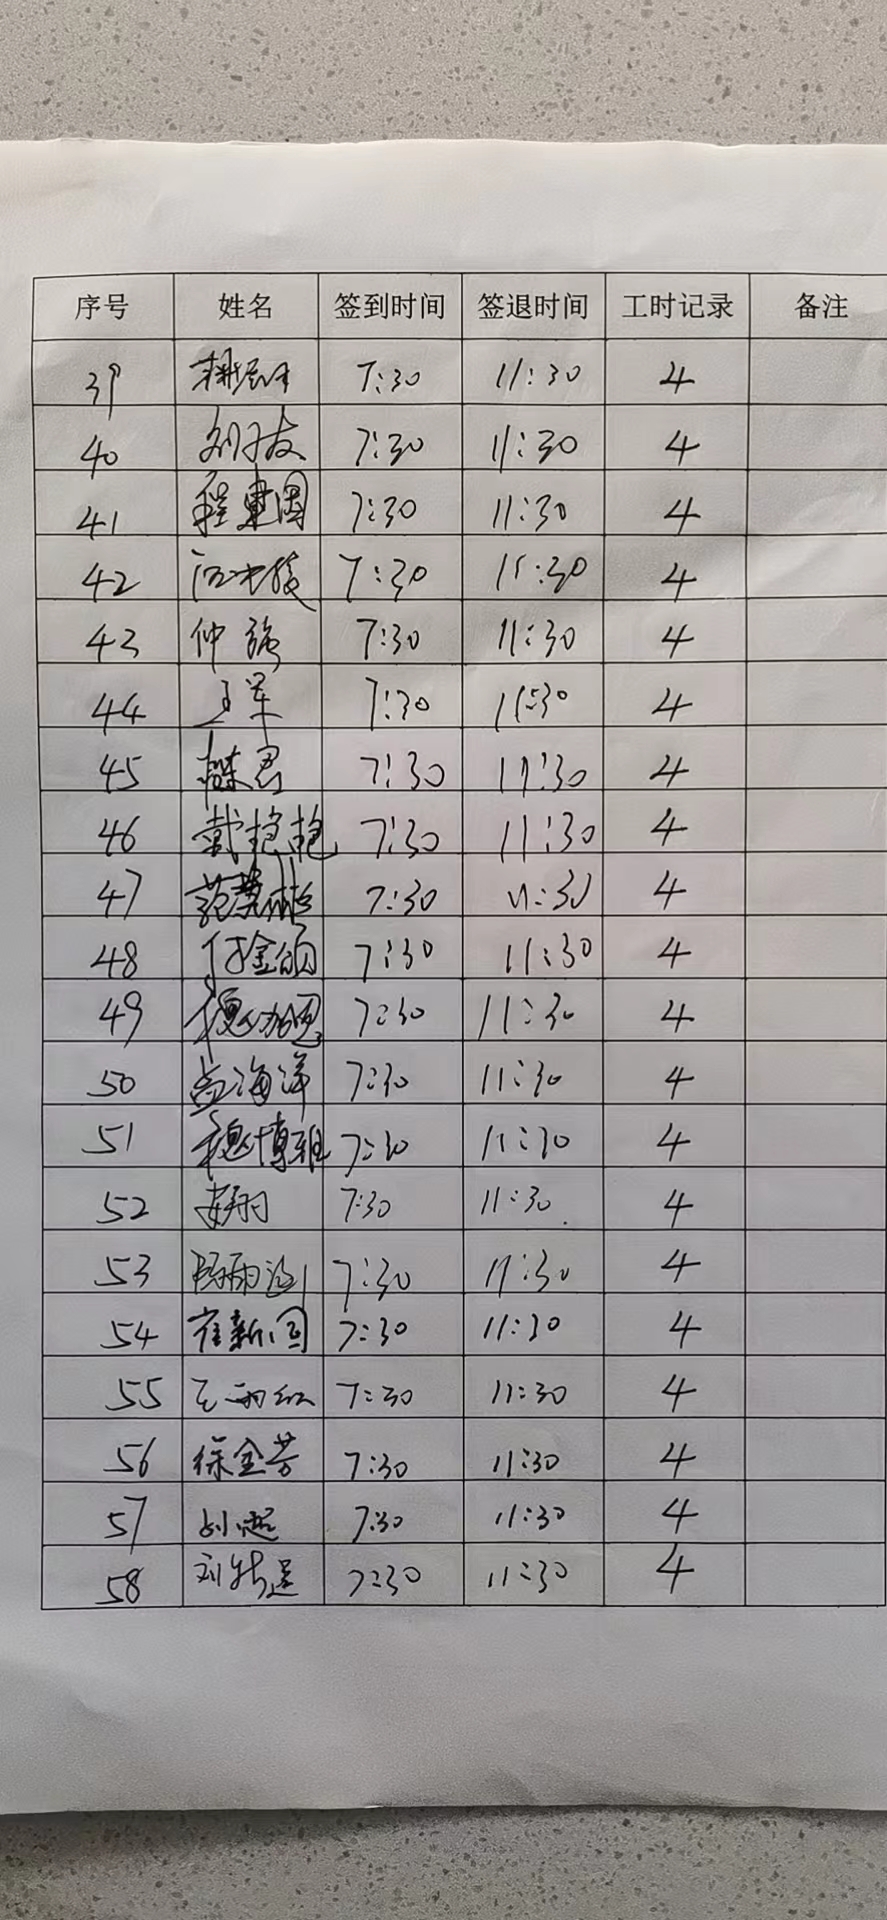 序号 姓名 签到时间 签退时间 工时记录 备注
39 7:30 11:30 4
40 刘子友 7:30 11:30 4
41 程東周 7:30 11:30 4
42 7:30 11:30 4
43 仲强 7:30 11:30 4
44 王军 7:30 11:30 4
45 陈君 7:30 11:30 4
46 戴艳艳 7:30 11:30 4
47 7:30 11:30 4
48 付金领 7:30 11:30 4
49 穆加恩 7:30 11:30 4
50 孟海洋 7:30 11:30 4
51 穆博雅 7:30 11:30 4
52 安翔 7:30 11:30 4
53 7:30 11:30 4
54 崔新国 7:30 11:30 4
55 王雨红 7:30 11:30 4
56 徐金芳 7:30 11:30 4
57 刘超 7:30 11:30 4
58 7:30 11:30 4